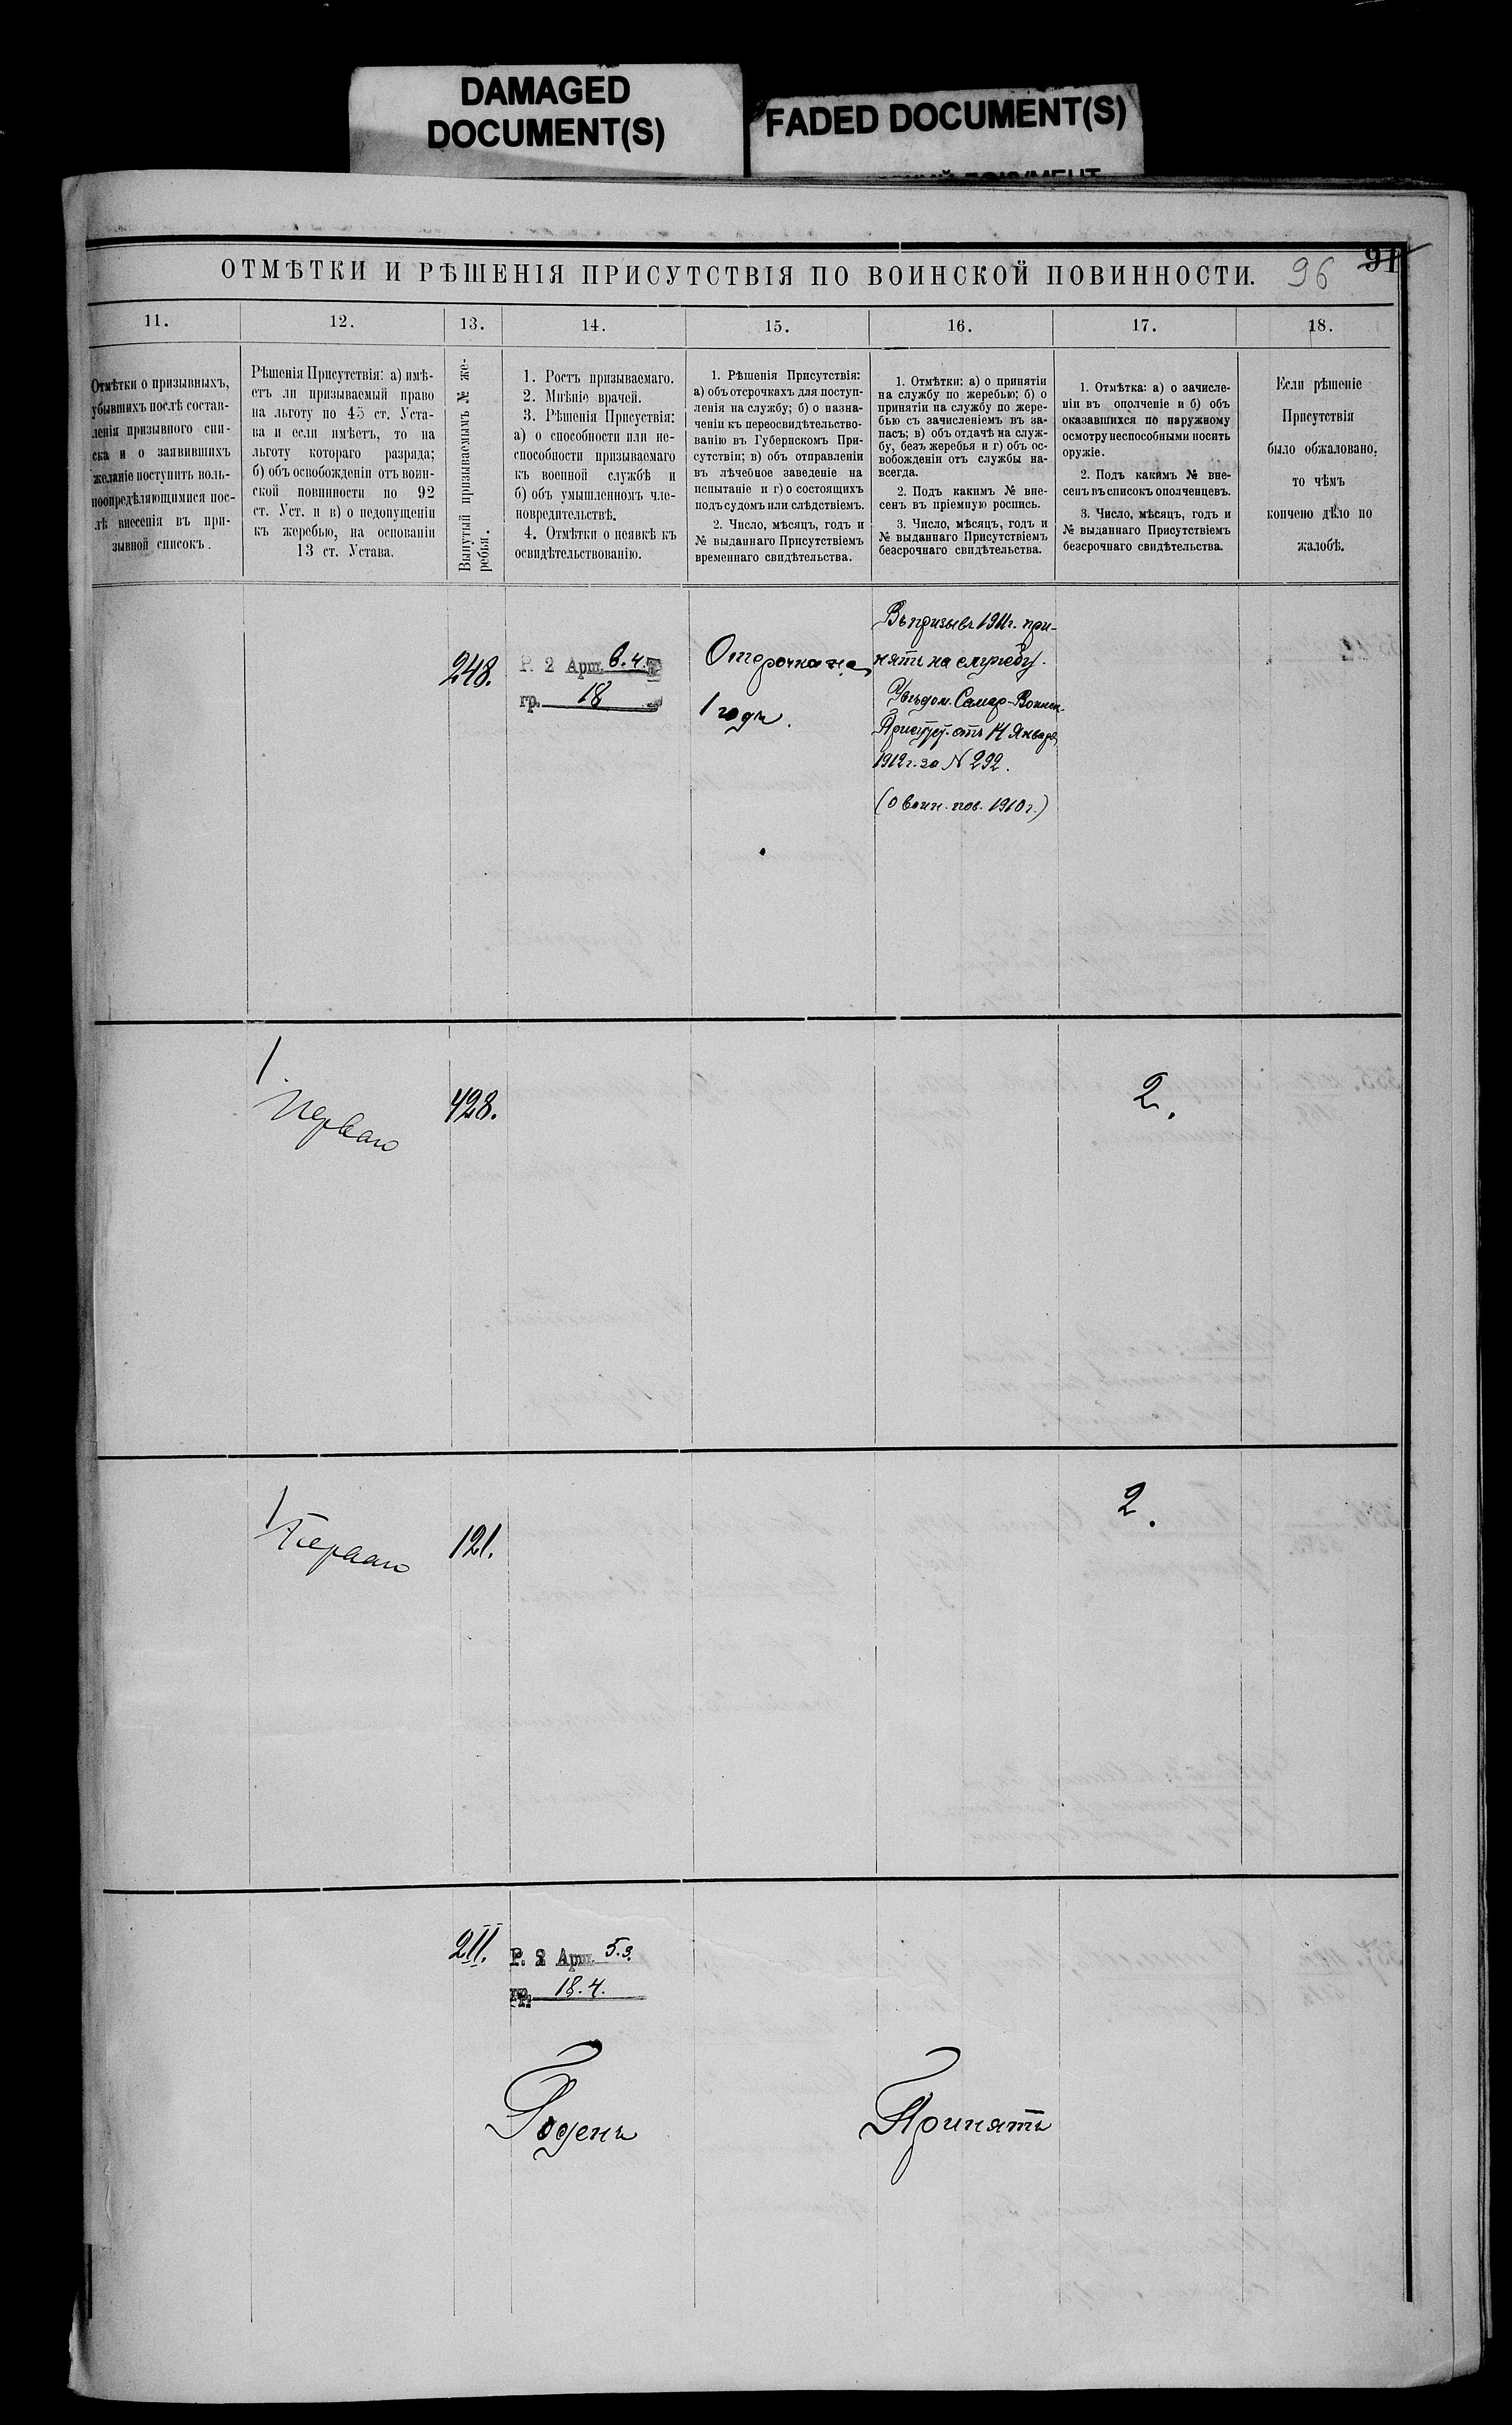 DAMAGED
DOCUMENT(S)
FADED DOCUMENT(S)
ОТМѢТКИ И РѢШЕНІЯ ПРИСУТСТВІЯ ПО ВОИНСКОЙ ПОВИННОСТИ.
96
91
11.
12.
13.
14.
15.
16.
17.
18.
Отмѣтки о призывныхъ,
убывшихъ послѣ состав-
ленія призывного спи-
ска и о заявившихъ
желаніе поступить воль-
ноопредѣляющимися пос-
лѣ внесенія въ при-
зывной списокъ.
Рѣшенія Присутствія: а) имѣ-
етъ ли призываемый право
на льготу по 45 ст. Уста-
ва и если имѣетъ, то на
льготу котораго разряда;
б) объ освобожденіи отъ воин-
ской повинности по 92
ст. Уст. и в) о недопущеніи
къ жеребью, на основаніи
13 ст. Устава.
Вынутый призываемымъ № же-
ребья.
1. Ростъ призываемаго.
2. Мнѣніе врачей.
3. Рѣшенія Присуствія:
а) о способности или не-
способности призываемаго
къ военной службѣ и
б) объ умышленномъ чле-
новредительствѣ.
4. Отмѣтки о неявкѣ къ
освидѣтельствованію.
1. Рѣшенія Присутствія:
а) объ отсрочкахъ для поступ-
ленія на службу; б) о назна-
ченіи къ переосвидѣтельство-
ванію въ Губернскомъ При-
сутствіи; в) объ отправленіи
въ лѣчебное заведеніе на
испытаніе и г) о состоящихъ
подъ судомъ или слѣдствіемъ.
2. Число, мѣсяцъ, годъ и
№ выданнаго Присутствіемъ
временнаго свидѣтельства.
1. Отмѣтки: а) о принятіи
на службу по жеребью; б) о
принятіи на службу по жере-
бью съ зачисленіемъ въ за-
пасъ; в) объ отдачѣ на служ-
бу, безъ жеребья и г) объ ос-
вобожденіи отъ службы на-
всегда.
2. Подъ какимъ № вне-
сенъ въ пріемную роспись.
3. Число, мѣсяцъ, годъ и
№ выданнаго Присутствіемъ
безсрочнаго свидѣтельства.
1. Отмѣтка: а) о зачисле-
ніи въ ополченіе и б) объ
оказавшихся по наружному
осмотру неспособными носить
оружіе.
2. Подъ какимъ № вне-
сенъ въ списокъ ополченцевъ.
3. Число, мѣсяцъ, годъ и
№ выданнаго Присутствіемъ
безсрочнаго свидѣтельства.
Если рѣшеніе
Присутствія
было обжаловано,
то чѣмъ
кончено дѣло по
жалобѣ.
248.
Р. 2 Арш. 6.4.
гр. 18
Отсрочка на
1 годъ.
Въ призывъ 1911 г. при-
нятъ на службу.
Увѣдом. Самар. Воинск.
Присутст. отъ 14 Января
1912 г. за N 292.
(о воин. пов. 1910 г.)
1.
Перваго
428.
2.
1
Перваго
121.
2.
211.
Р. 2 Арш. 5.3.
гр. 18.4.
Годенъ
Принятъ